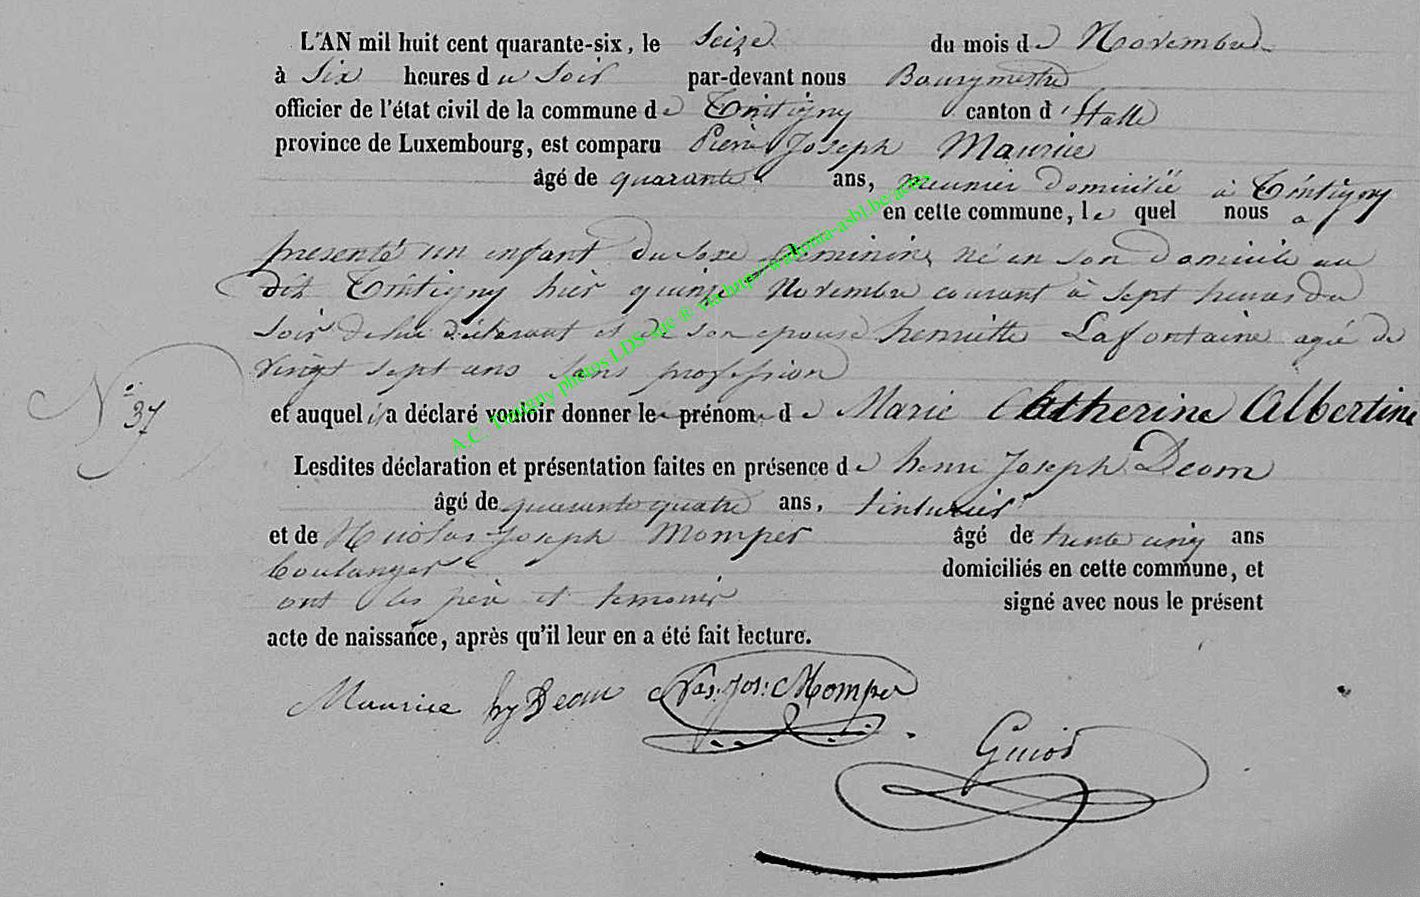 L'AN mil huit cent quarante-six, le Seize du mois de Novembre
à Six heures du Soir par-devant nous Bourgmestre
officier de l'état civil de la commune de Tintigny canton d'Etalle
province de Luxembourg, est comparu Pierre Joseph Maurice
âgé de quarante ans, meunier domicilié à Tintigny
en cette commune, le quel nous a
presenté un enfant du sexe feminin, né en son domicile au
dit Tintigny hier quinze Novembre courant à sept heures du
Soir de lui déclarant et de son epouse henriette Lafontaine agée de
vingt sept ans sans profession
N° 37
et auquel il a déclaré vouloir donner le prénom de Marie Catherine Albertine
Lesdites déclaration et présentation faites en présence de henri Joseph Deom
âgé de quarante quatre ans, tinturier
et de Nicolas Joseph Momper âgé de trente cinq ans
boulanger domiciliés en cette commune, et
ont les père et temoins signé avec nous le présent
acte de naissance, après qu'il leur en a été fait lecture.
Maurice hy Deom Nas. Jos: Momper
Guiot
A.C. Tintigny photos LDS Luc ® via http://wallonia-asbl.be/actes